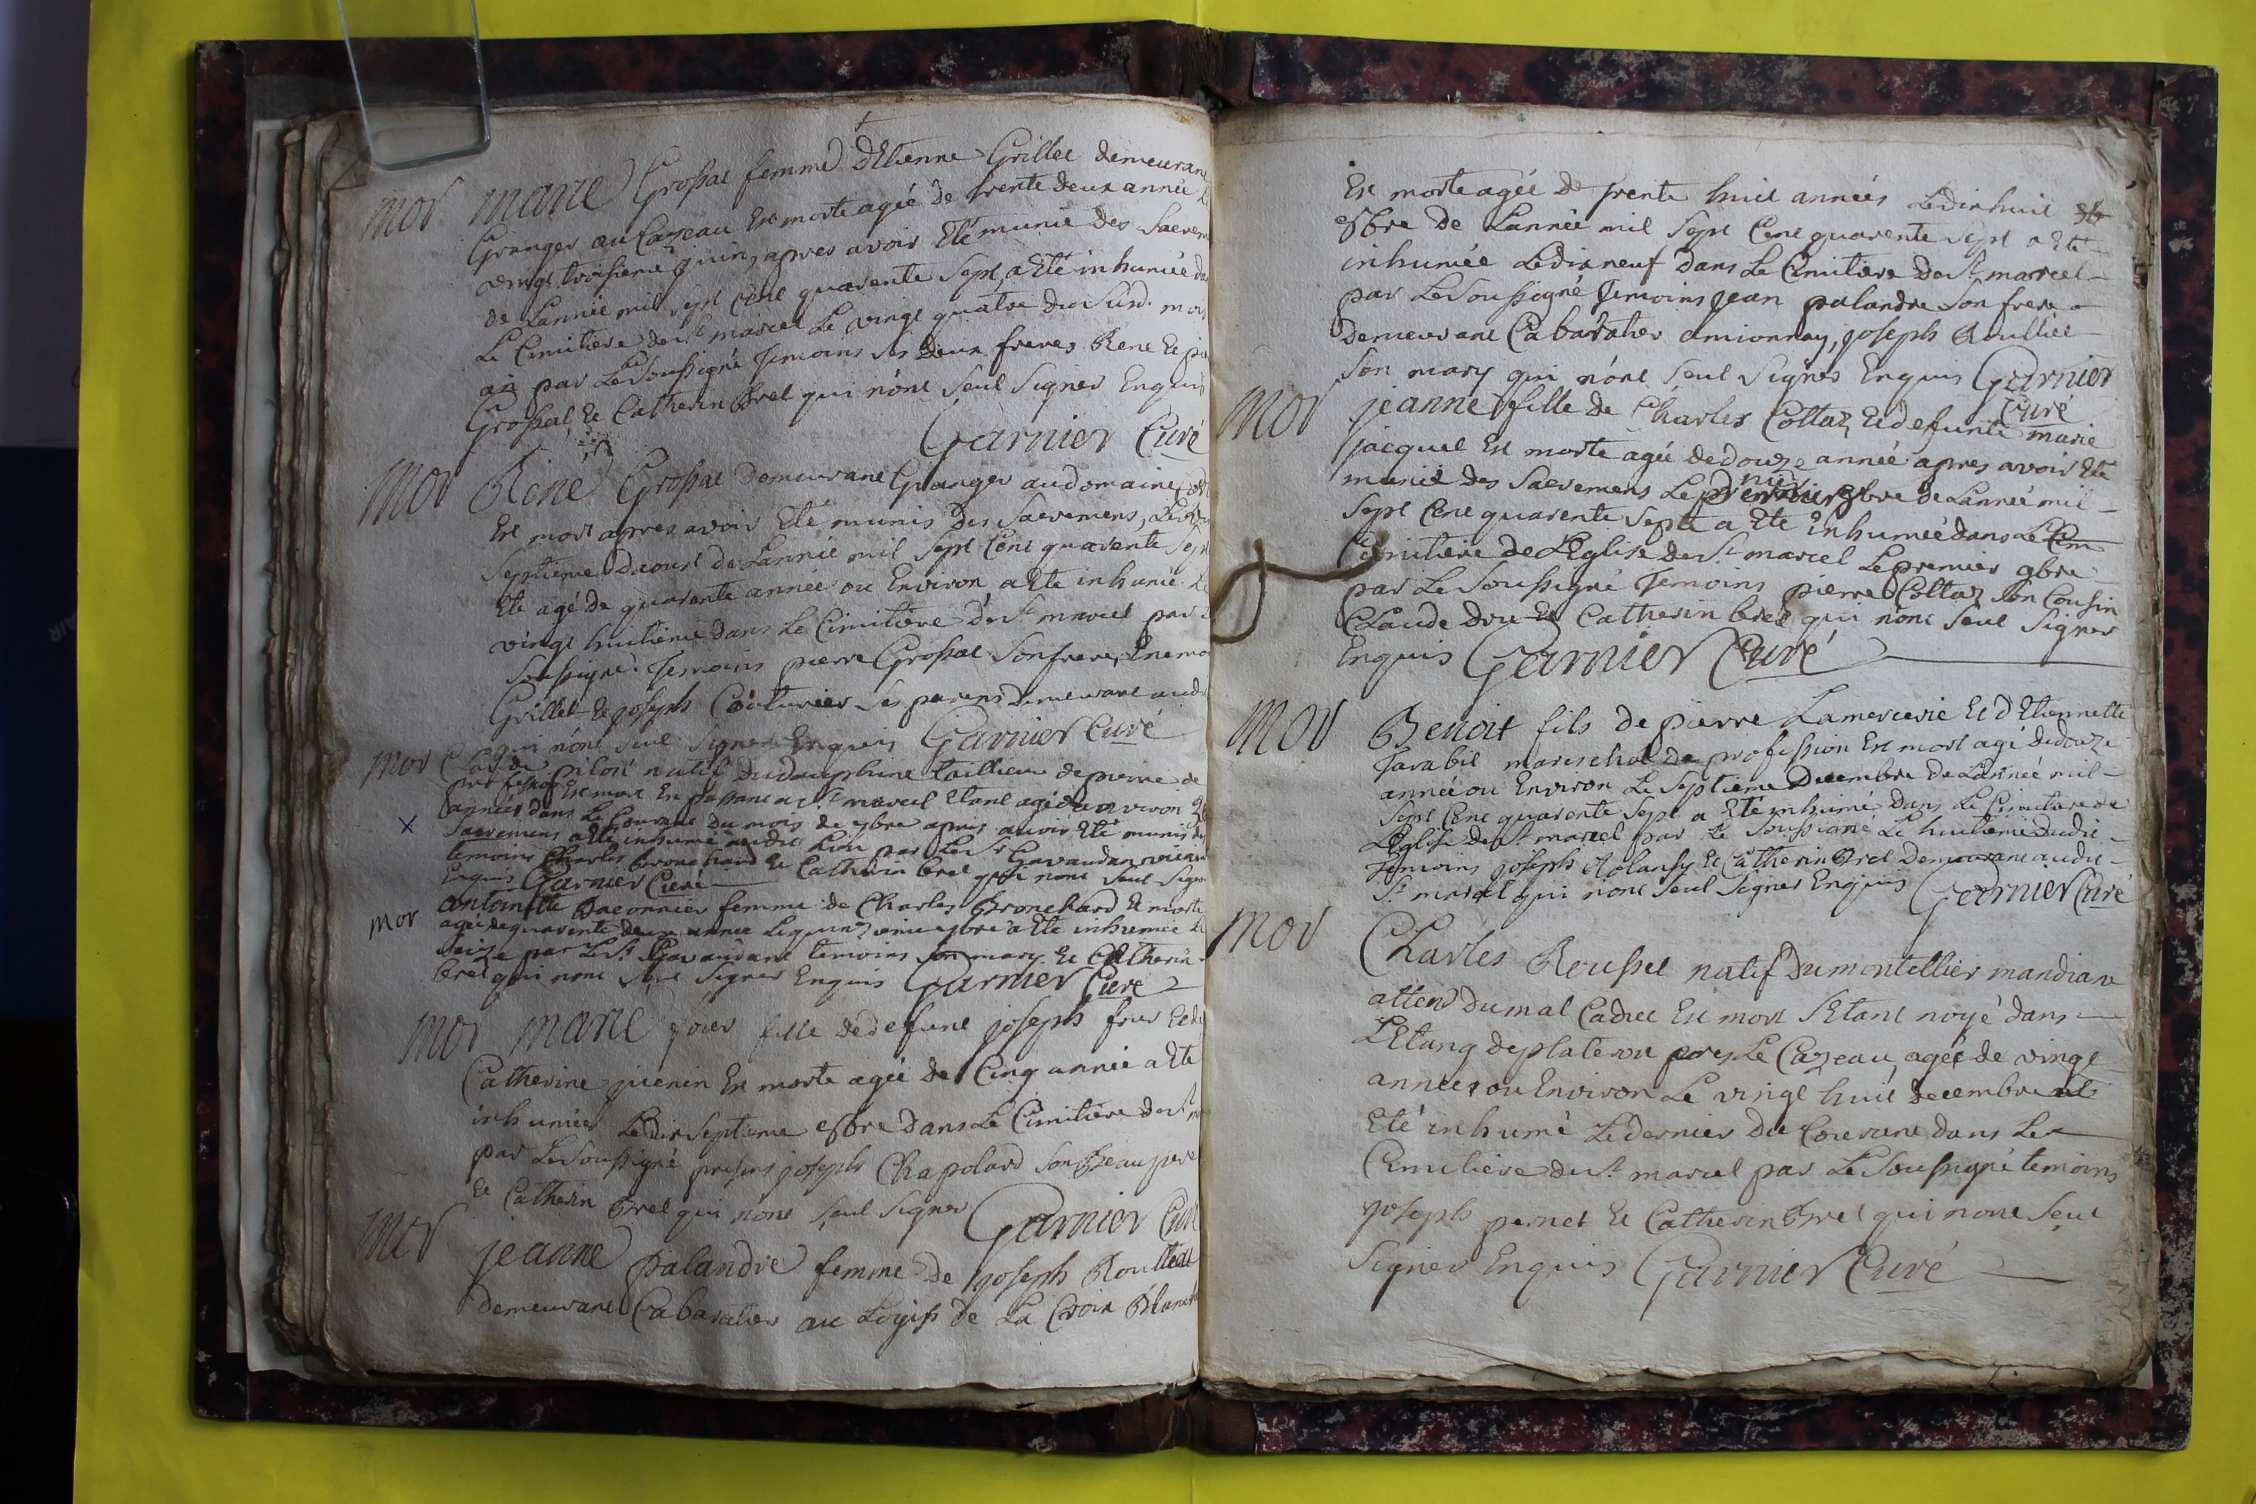 mor marie Grossat femme d'Etienne Grillet demeurant
Granger au Cazeau Est morte agée de trente deux année Le
vingt troisieme juin, apres avoir Eté munie des Sacrem
de Lannée mil sept cent quarente sept, a Eté inhumée da
Le Cimitiere de St marcel Le vingt quatre du Susd. mois
par Le Soussigné Temoins ses deux freres Rene Et pie
Grossat, Et Catherin Brel qui n'ont seut Signer Enquis
Garnier Curé
mor Réné Grossat demeurant Granger au domaine
Est mort apres avoir Eté munis des Sacremens, Le
Septieme daoust de Lannée mil sept cent quarente sept
Eté agé de quarente année ou Environ a Eté inhumé Le
vingt huitieme dans Le Cimitiere de St marcel par Le
soussigné. Temoins pierre Grossat Son frere,
Grillet Et joseph Couturier ses parens demeurant audi
qui n'ont seut Signer Enquis Garnier Curé
mor Claude pilot natif du dauphine tallieur de pierre de
profession Est mort En passant a St marcel Etant agé denviron
années dans Le Courant du mois de 9bre apres avoir Eté munis des
Sacremens a Eté inhumé audit Lieu par Le Sr Gavaudan vicaire
temoins Charles Bronchard Et Catherin brel qui nont seut Signer
Enquis Garnier Curé
mor antoinette Daconnier femme de Charles Bronchard Et morte
agée de quarente deux année Le quinzieme 9bre a Eté inhumée Le
Seize par Le Sr Gavaudant temoins son mary Et Catherin
brel qui nont seut Signer Enquis Garnier Curé
mor marie four fille de defunt joseph four Et de
Catherine juenin Est morte agée de Cinq année a Eté
inhumée Le dix Septieme 8bre dans Le Cimitiere de St
par Le Soussigné presens joseph Chapolard son Beaupere
Et Catherin Brel qui nont seut Signer Garnier Curé
mor jeanne palandre femme de joseph Roulliet
demeurant Cabaratier au Logis de La Croix Blanche
Est morte agée de trente huit années Le dix huit
8bre de Lannée mil sept Cent quarente sept a Eté
inhumée Le dix neuf dans Le Cimitiere de St marcel
par Le Soussigné Temoins jean palandre Son frere
demeurant Cabaratier amionnay, joseph Roulliet
Son mary qui n'ont seut Signer Enquis Garnier
Curé
mor jeanne fille de Charles Collaz Et defunte marie
jacquet Est morte agée de douze année apres avoir Eté
munie des Sacremens Le 8bre de Lannée mil
sept Cent quarente Sept a Eté Enhumée dans Le Cim
Cimitiere de L'Eglise de St marcel Le premier 9bre
par Le Soussigné Temoins pierre Collaz son Cousin
Claude dru Et Catherin brel qui n'ont seut Signer
Enquis Garnier Curé
mor Benoit fils de pierre Lamercerie Et d'Etiennette
Tarabit marechal de profession Est mort agé de douze
année ou Environ Le Septieme Decembre de Lannée mil
Sept Cent quarente Sept a Eté inhumé dans Le Cimitiere de
L'Eglise de St marcel par Le Soussigné Le huitieme dudit
Temoins joseph Rolansy Et Catherin Brel demeurant audit
St marcel qui nont seut Signer Enquis Garnier Curé
mor Charles Rousset natif Dumontellier mandiant
atteint dumal Caduc Est mort S'Etant noyé dans
L'Etang de plateron pres Le Cazeau, agée de vingt
années ou Environ Le vingt huit decembre
Eté inhumé Le dernier du Courant dans Le
Cimitiere de St marcel par Le Soussigné temoins
joseph pernet Et Catherin Brel qui nont seut
Signer Enquis Garnier Curé